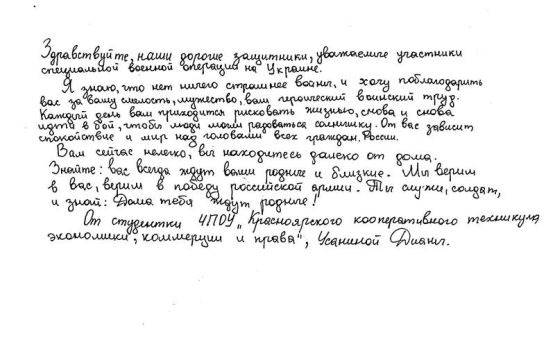 Здравствуйте, наши дорогие защитники, уважаемые участники
специальной военной операции на Украине.
Я знаю, что нет ничего страшнее войны, и хочу поблагодарить
вас за вашу смелость, мужество, ваш героический воинский труд.
Каждый день вам приходится рисковать жизнью, снова и снова
идти в бой, чтобы люди могли радоваться солнышку. От вас зависит
спокойствие и мир над головами всех граждан России.
Вам сейчас нелегко, вы находитесь далеко от дома.
Знайте: вас всегда ждут ваши родные и близкие. Мы верим
в вас, верим в победу российской армии. Ты служи, солдат,
и знай: Дома тебя ждут родные!
От студентки ЧПОУ „Красноярского кооперативного техникума
экономики, коммерции и права", Усаниной Дианы.